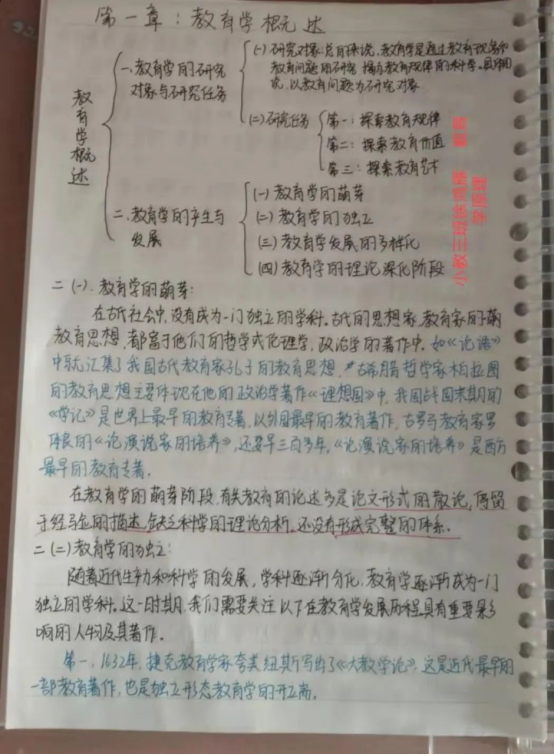 第一章：教育学概述
教育学概述
一.教育学的研究
对象与研究任务
(一)研究对象:总目标说,教育学是通过教育现象和
教育问题的研究,揭示教育规律的科学。具体
说,以教育问题为研究对象
(二)研究任务
第一：探索教育规律
第二：探索教育价值
第三：探索教育艺术
二.教育学的产生与
发展
(一)教育学的萌芽
(二)教育学的独立
(三)教育学发展的多样化
(四)教育学的理论深化阶段
小教三班
学原理
二(一).教育学的萌芽:
在古代社会中,没有成为一门独立的学科.古代的思想家.教育家的萌
教育思想,都富于他们的哲学或伦理学,政治学的著作中.如《论语》
中就汇集了我国古代教育家孔子的教育思想,古希腊哲学家柏拉图
的教育思想主要体现在他的政治学著作《理想国》中,我国战国末期的
《学记》是世界上最早的教育专著,以外国最早的教育著作,古罗马教育家昆
体良的《论演说家的培养》,还要早三百多年,《论演说家的培养》是西方
最早的教育专著.
在教育学的萌芽阶段,有关教育的论述多是论文形式的散论,停留
于经验的描述,缺乏科学的理论分析,还没有形成完整的体系.
二(二)教育学的独立:
随着近代生产力和科学的发展,学科逐渐分化,教育学逐渐成为一门
独立的学科.这一时期,我们需要关注以下在教育学发展历程具有重要影
响的人物及其著作.
第一,1632年,捷克教育学家夸美纽斯写出了《大教学论》,这是近代最早的
一部教育著作,也是独立形态教育学的开端.